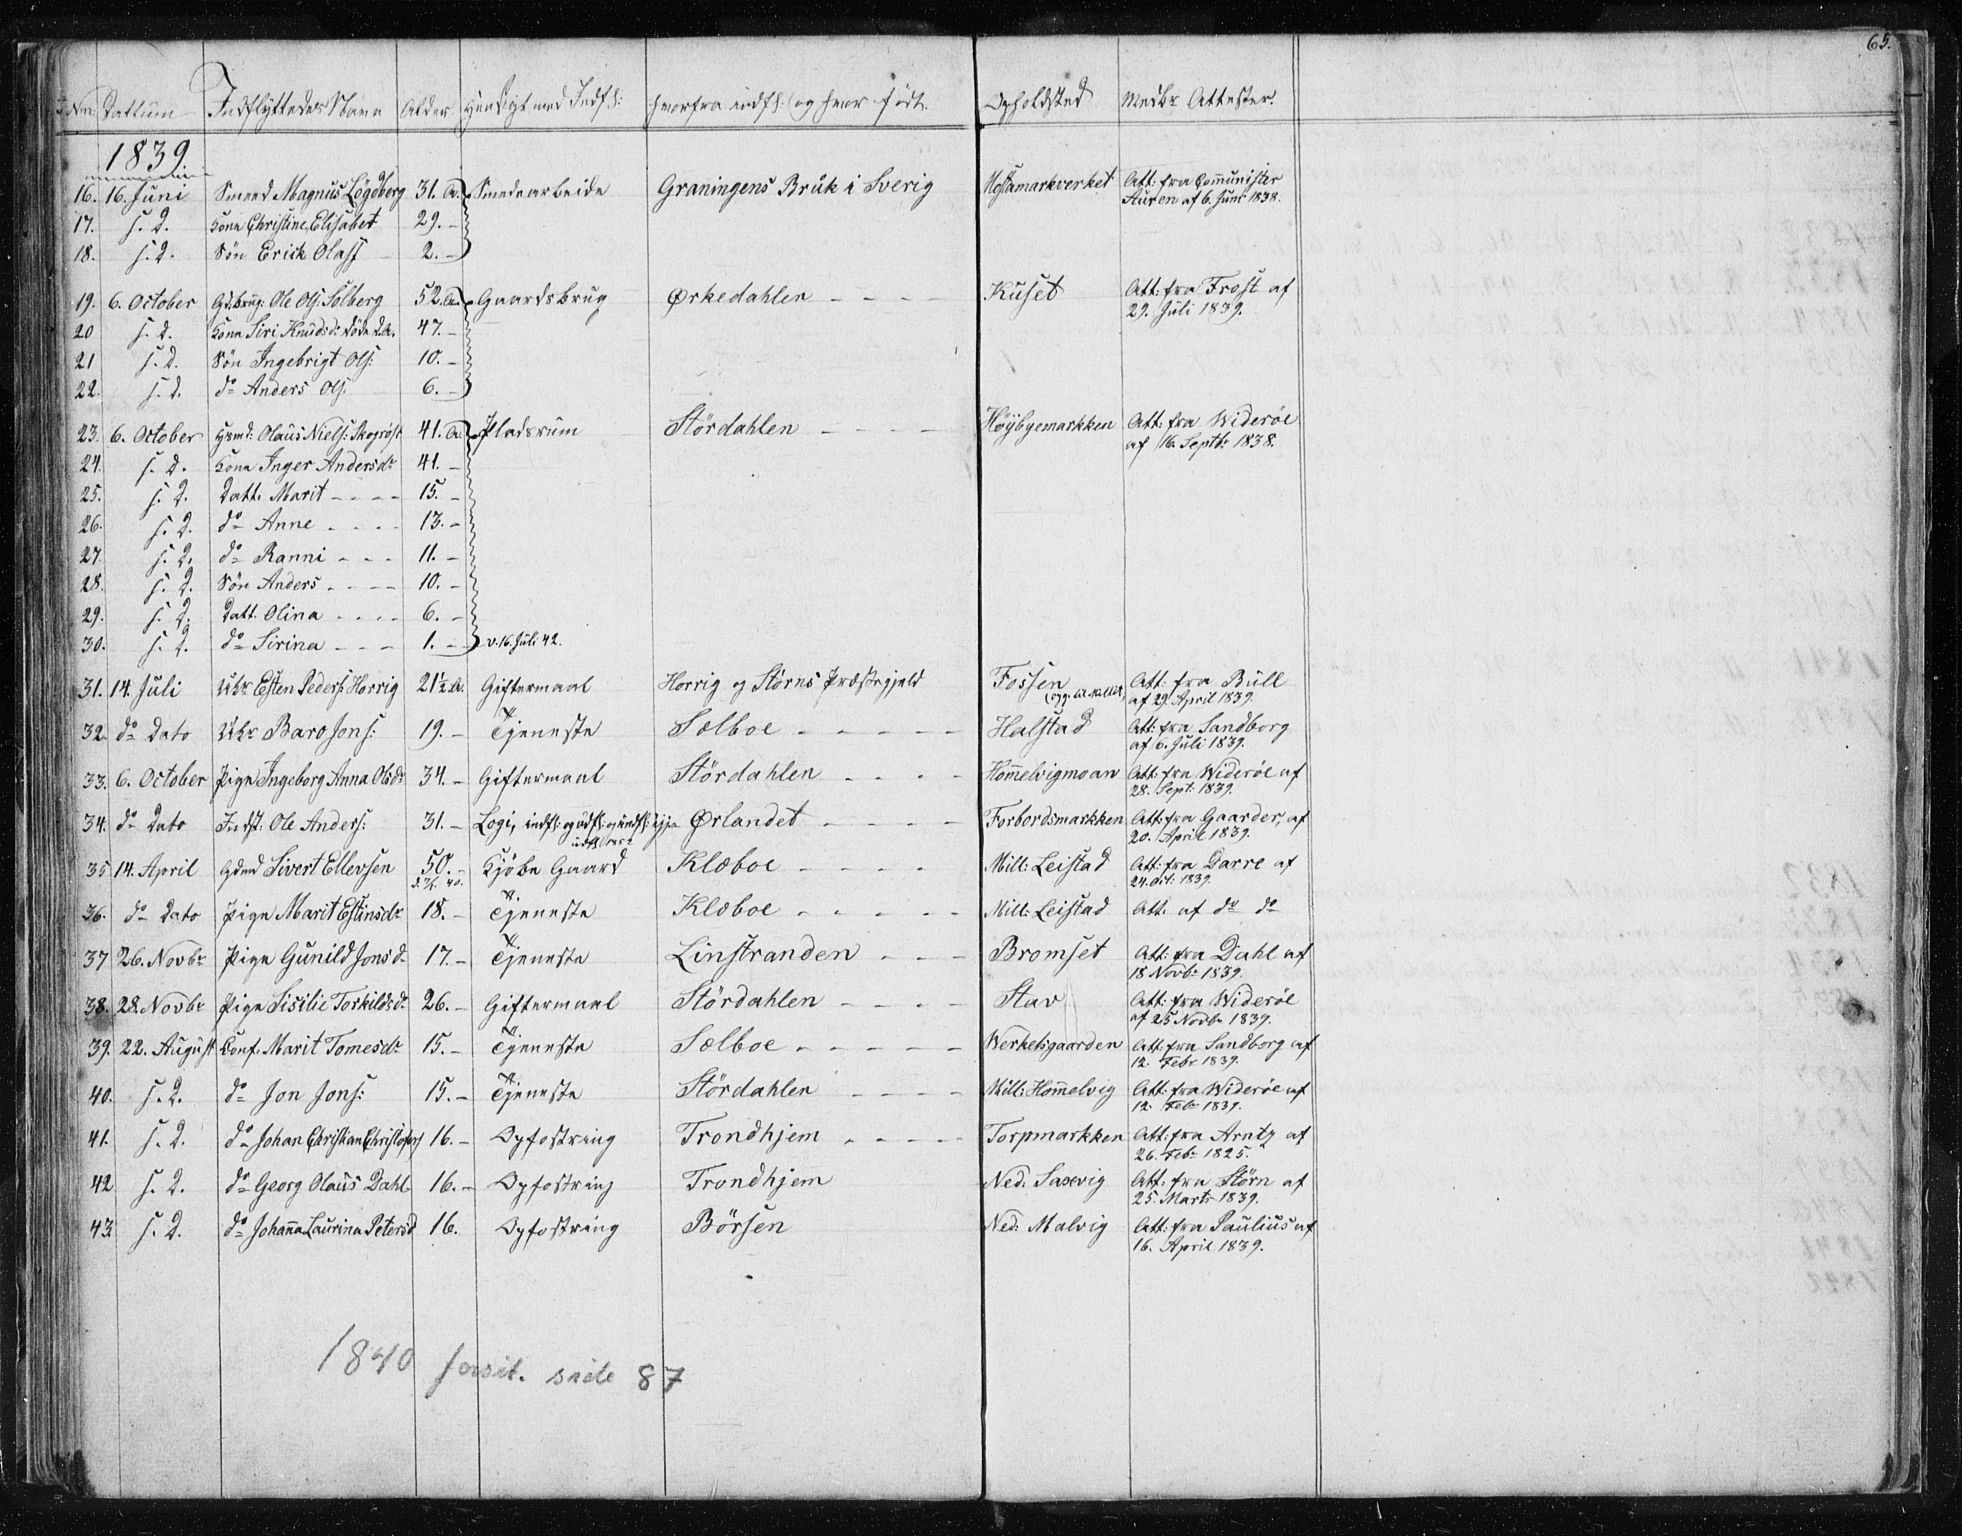 65.
Dattum Indflyttedes Navn Alder Hensigt med Indfl: hvorfra indfl: (og hvor født. Opholdsted Medbr Attester.
1839.
16. 16. Juni Smeed Magnus Lögdberg 31. A. Smedearbeide Graningens Brük i Sverig Mostamarkverket Att: fra Communister
Sturen af 6. Juni 1838.
17. s. D. Kone Christine Elisabet 29. –
18. s. D. Søn Erick Olaff – 2. –
19. 6. October Gdbrug: Ole Ols: Solberg 52. A. Gaardsbrug Ørkedahlen – – – – Kuset Att: fra Frost af
29. Juli 1839.
20 s. D. Kone Siri Knudsdr 47. –
21 s. D. Søn Ingebrigt Ols: 10. –
22. s. D. do Anders Ols: 6. –
23. 6. October Hsmd: Olaus Niels: Skogrøst 41. A. Pladsrum Stördahlen – – – – Höÿbyemarkken Att: fra Widerøe
af 16. Septbr 1838.
24. s. D. Kone Inger Andersdr 41. –
25. s. D. Datt. Marit – – – – 15. –
26. s. D. do Anne – – – – 13. –
27. s. D. do Ranni – – – 11. –
28. s. D. Søn Anders – – – – 10. –
29. s. D. Datt. Olina – – – – 6. –
30. s. D. do Sirina – – – 1. – v. 16. Juli 42.
31. 14. Juli Ukr Esten Peders: Horrig 21½ A. Giftermaal Horrig og Störns Præstegjeld Fossen Att: fra Büll
af 29. April 1839.
32. do Dato Ukr Baro Jons: 19. – Tjeneste Sælboe – – – – – Halstad Att: fra Sandborg
af 6. Juli 1839.
33. 6. October Pige Ingeborg Anna Olsdr 34. – Giftermaal Stördahlen – – – – Hommelvigmoan Att: fra Widerøe af
28. Sept: 1839.
34. do Dato Indst: Ole Anders: 31. – Logi, indfl: og udfl: og indfl: igjen Ørlandet – – – – Forbordsmarkken Att: fra Gaarder, af
20. April 1839.
35 14. April Gdmd Sivert Ellevsen 50. – Kjøbe Gaard Klæboe – – – – Mill: Leistad Att: fra Darre af
24. dec: 1839.
36. do Dato Pige Marit Estinsdr 18. – Tjeneste Klæboe – – – – – Mill: Leistad Att: af do do
37 26. Novbr Pige Gunild Jonsd. 17. – Tjeneste Linstranden – – – Bromset Att: fra Dahl af
18 Novbr 1839.
38. 28. Novbr Pige Sisilie Torkildsdr 26. – Giftermaal Stördahlen – – – – Stav Att: fra Widerøe
af 25 Novbr 1839.
39. 22. August Conf: Marit Tomesdr 15. – Tjeneste Sælboe – – – – – Werkelsgaarden Att: fra Sandborg af
12. Febr 1839.
40. s. D. do Jon Jons: 15. – Tjeneste Stördahlen – – – – Mill: Hommelvig Att: fra Widerøe af
12. Febr 1839.
41. s. D. do Johan Christian Christofers 16. – Opfostring Trondhjem – – – – Torpmarkken Att: fra Arntz af
26. Febr 1825.
42 s. D. do Georg Olaus Dahl 16. – Opfostring Trondhjem Ned. Saxevig Att: fra Störn af
25. Marts 1839.
43. s. D. do Johanna Laurina Petersd 16. Opfostring Börsen Ned: Malvig Att: fra Paulius af
16. April 1839.
1840 forsit. side 87